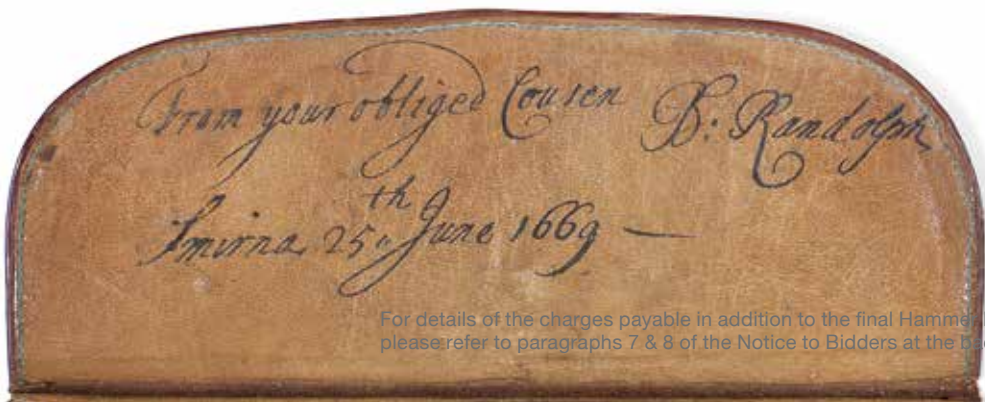 From your obliged Cousen B: Randolph
Smirna 25th June 1669 —
For details of the charges payable in addition to the final Hammer
please refer to paragraphs 7 & 8 of the Notice to Bidders at the